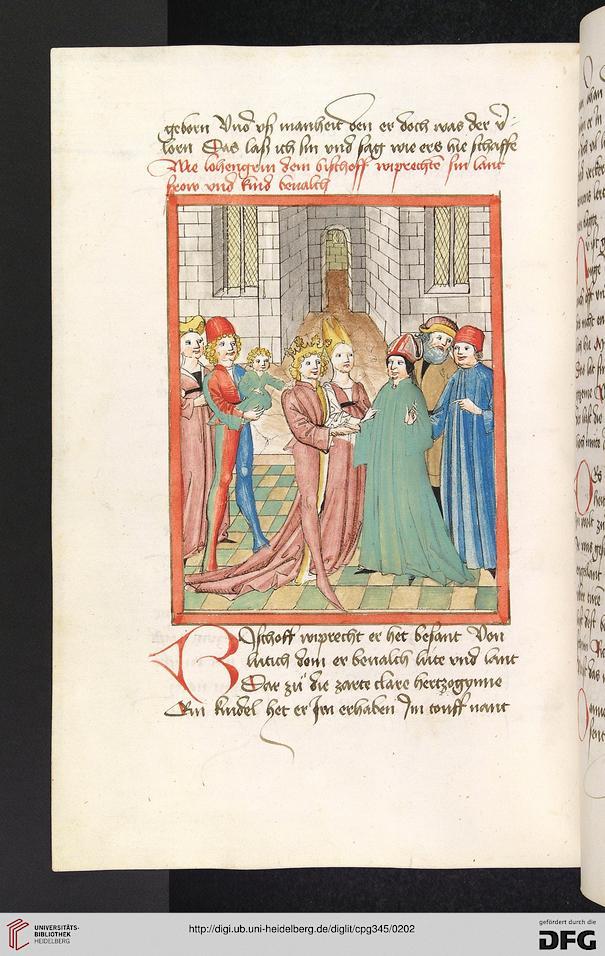 geborn Vnd vß manheit den er doch was der v̄-
lorn Das laß ich sin vnd sag wie ers hie schaffe
Wie lohengrin dem bischoff wiprechten sin lant
frow vnd kind beualch
Bischoff wiprecht er het besant Von
lutich dem er beualch lute vnd lant
Dar zů die zarte clare hertzogynne
Ein kindel het er Irn erhaben Im touff nant
UNIVERSITÄTS-
BIBLIOTHEK
HEIDELBERG
http://digi.ub.uni-heidelberg.de/diglit/cpg345/0202
gefördert durch die
DFG